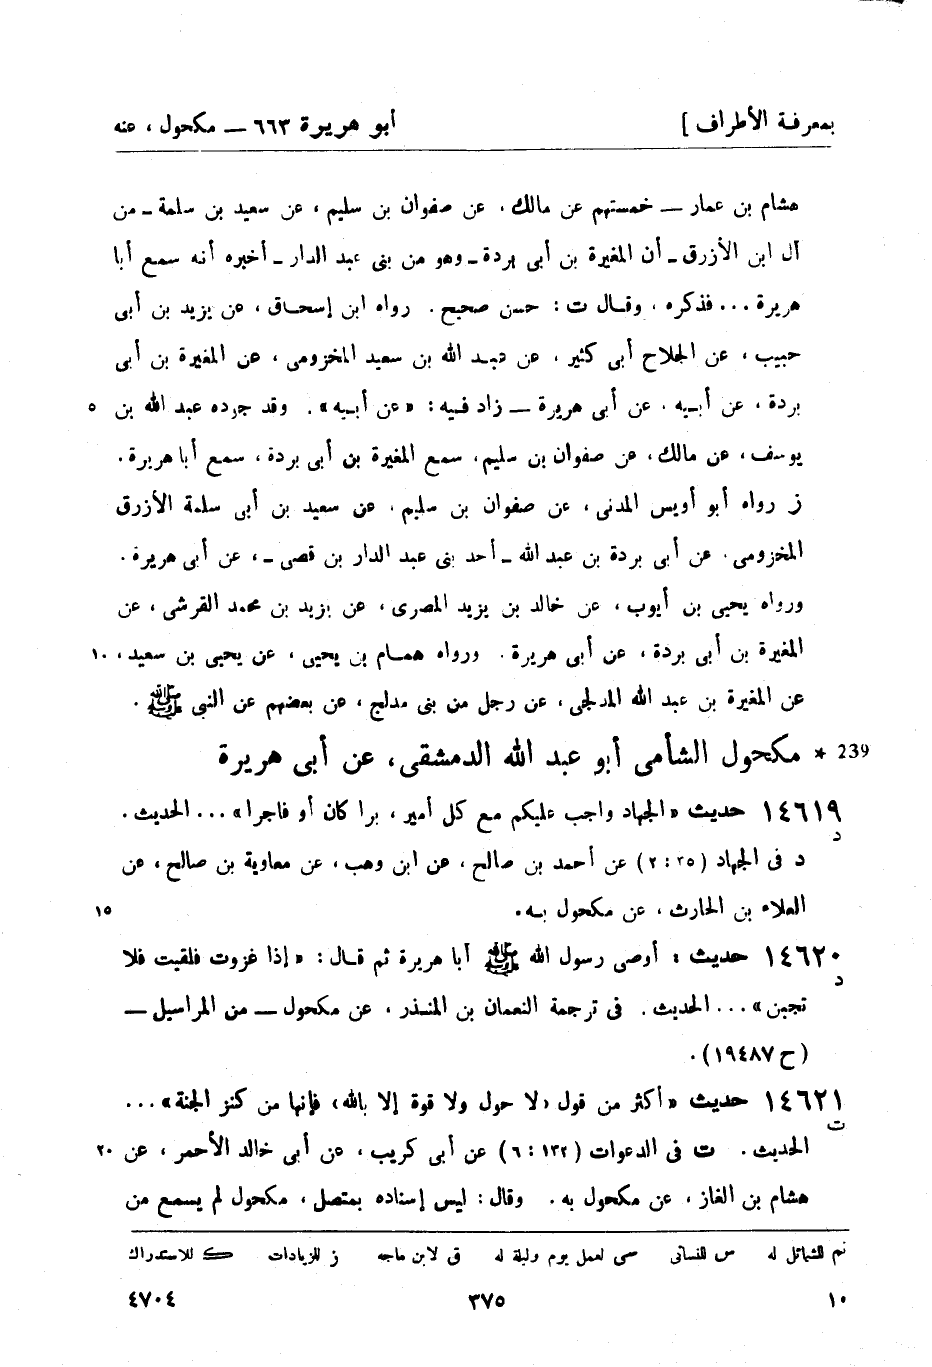 بمعرفة الأطراف ] أبو هريرة ٦٦٣ — مكحول ، عنه
هشام بن عمار — خمستهم عن مالك ، عن صفوان بن سليم ، عن سعيد بن سلمة - من
آل ابن الأزرق - أن المغيرة بن أبى بردة - وهو من بنى عبد الدار - أخبره أنه سمع أبا
هريرة ... فذكره ، وقال ت : حسن صحيح . رواه ابن إسحاق ، عن يزيد بن أبى
حبيب ، عن الجلاح أبى كثير ، عن عبد الله بن سعيد المخزومى ، عن المغيرة بن أبى
بردة ، عن أبيه ، عن أبى هريرة — زاد فيه : «عن أبيه» . وقد جرده عبد الله بن ٥
يوسف ، عن مالك ، عن صفوان بن سليم ، سمع المغيرة بن أبى بردة ، سمع أبا هريرة .
ز رواه أبو أويس المدنى ، عن صفوان بن سليم ، عن سعيد بن أبى سلمة الأزرق
المخزومى ، عن أبى بردة بن عبد الله - أحد بنى عبد الدار بن قصى - ، عن أبى هريرة .
ورواه يحيى بن أيوب ، عن خالد بن يزيد المصرى ، عن يزيد بن محمد القرشى ، عن
المغيرة بن أبى بردة ، عن أبى هريرة . ورواه همام بن يحيى ، عن يحيى بن سعيد ، ١٠
عن المغيرة بن عبد الله المدلجى ، عن رجل من بنى مدلج ، عن بعضهم عن النبى ﷺ .
239 * مكحول الشأمى أبو عبد الله الدمشقى ، عن أبى هريرة
١٤٦١٩ حديث «الجهاد واجب عليكم مع كل أمير ، برا كان أو فاجرا» ... الحديث .
د
د فى الجهاد (٣٥ : ٢) عن أحمد بن صالح ، عن ابن وهب ، عن معاوية بن صالح ، عن
العلاء بن الحارث ، عن مكحول به . ١٥
١٤٦٢٠ حديث : أوصى رسول الله ﷺ أبا هريرة ثم قال : «إذا غزوت فلقيت فلا
د
تجبن» ... الحديث . فى ترجمة النعمان بن المنذر ، عن مكحول — من المراسيل —
(ح ١٩٤٨٧) .
١٤٦٢١ حديث «أكثر من قول «لا حول ولا قوة إلا بالله» فإنها من كنز الجنة» ...
ت
الحديث . ت فى الدعوات (١٣٢ : ٦) عن أبى كريب ، عن أبى خالد الأحمر ، عن ٢٠
هشام بن الغاز ، عن مكحول به . وقال : ليس إسناده بمتصل ، مكحول لم يسمع من
تم للشمائل له س للنسائى سى لعمل يوم وليلة له ق لابن ماجه ز للزيادات ك للاستدراك
١٠ ٣٧٥ ٤٧٠٤